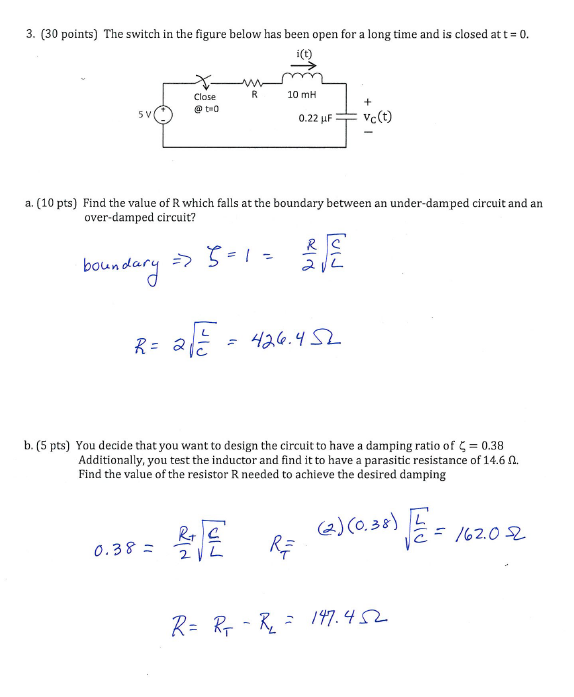 3. (30 points) The switch in the figure below has been open for a long time and is closed at t = 0.
i(t)
Close
@ t=0
R
10 mH
5 V
+
-
0.22 µF
+
vc(t)
−
a. (10 pts) Find the value of R which falls at the boundary between an under-damped circuit and an
over-damped circuit?
boundary => ζ = 1 = R/2 √(C/L)
R = 2 √(L/C) = 426.4 Ω
b. (5 pts) You decide that you want to design the circuit to have a damping ratio of ζ = 0.38
Additionally, you test the inductor and find it to have a parasitic resistance of 14.6 Ω.
Find the value of the resistor R needed to achieve the desired damping
0.38 = R_T/2 √(C/L) R_T = (2)(0.38) √(L/C) = 162.0 Ω
R = R_T - R_L = 147.4 Ω